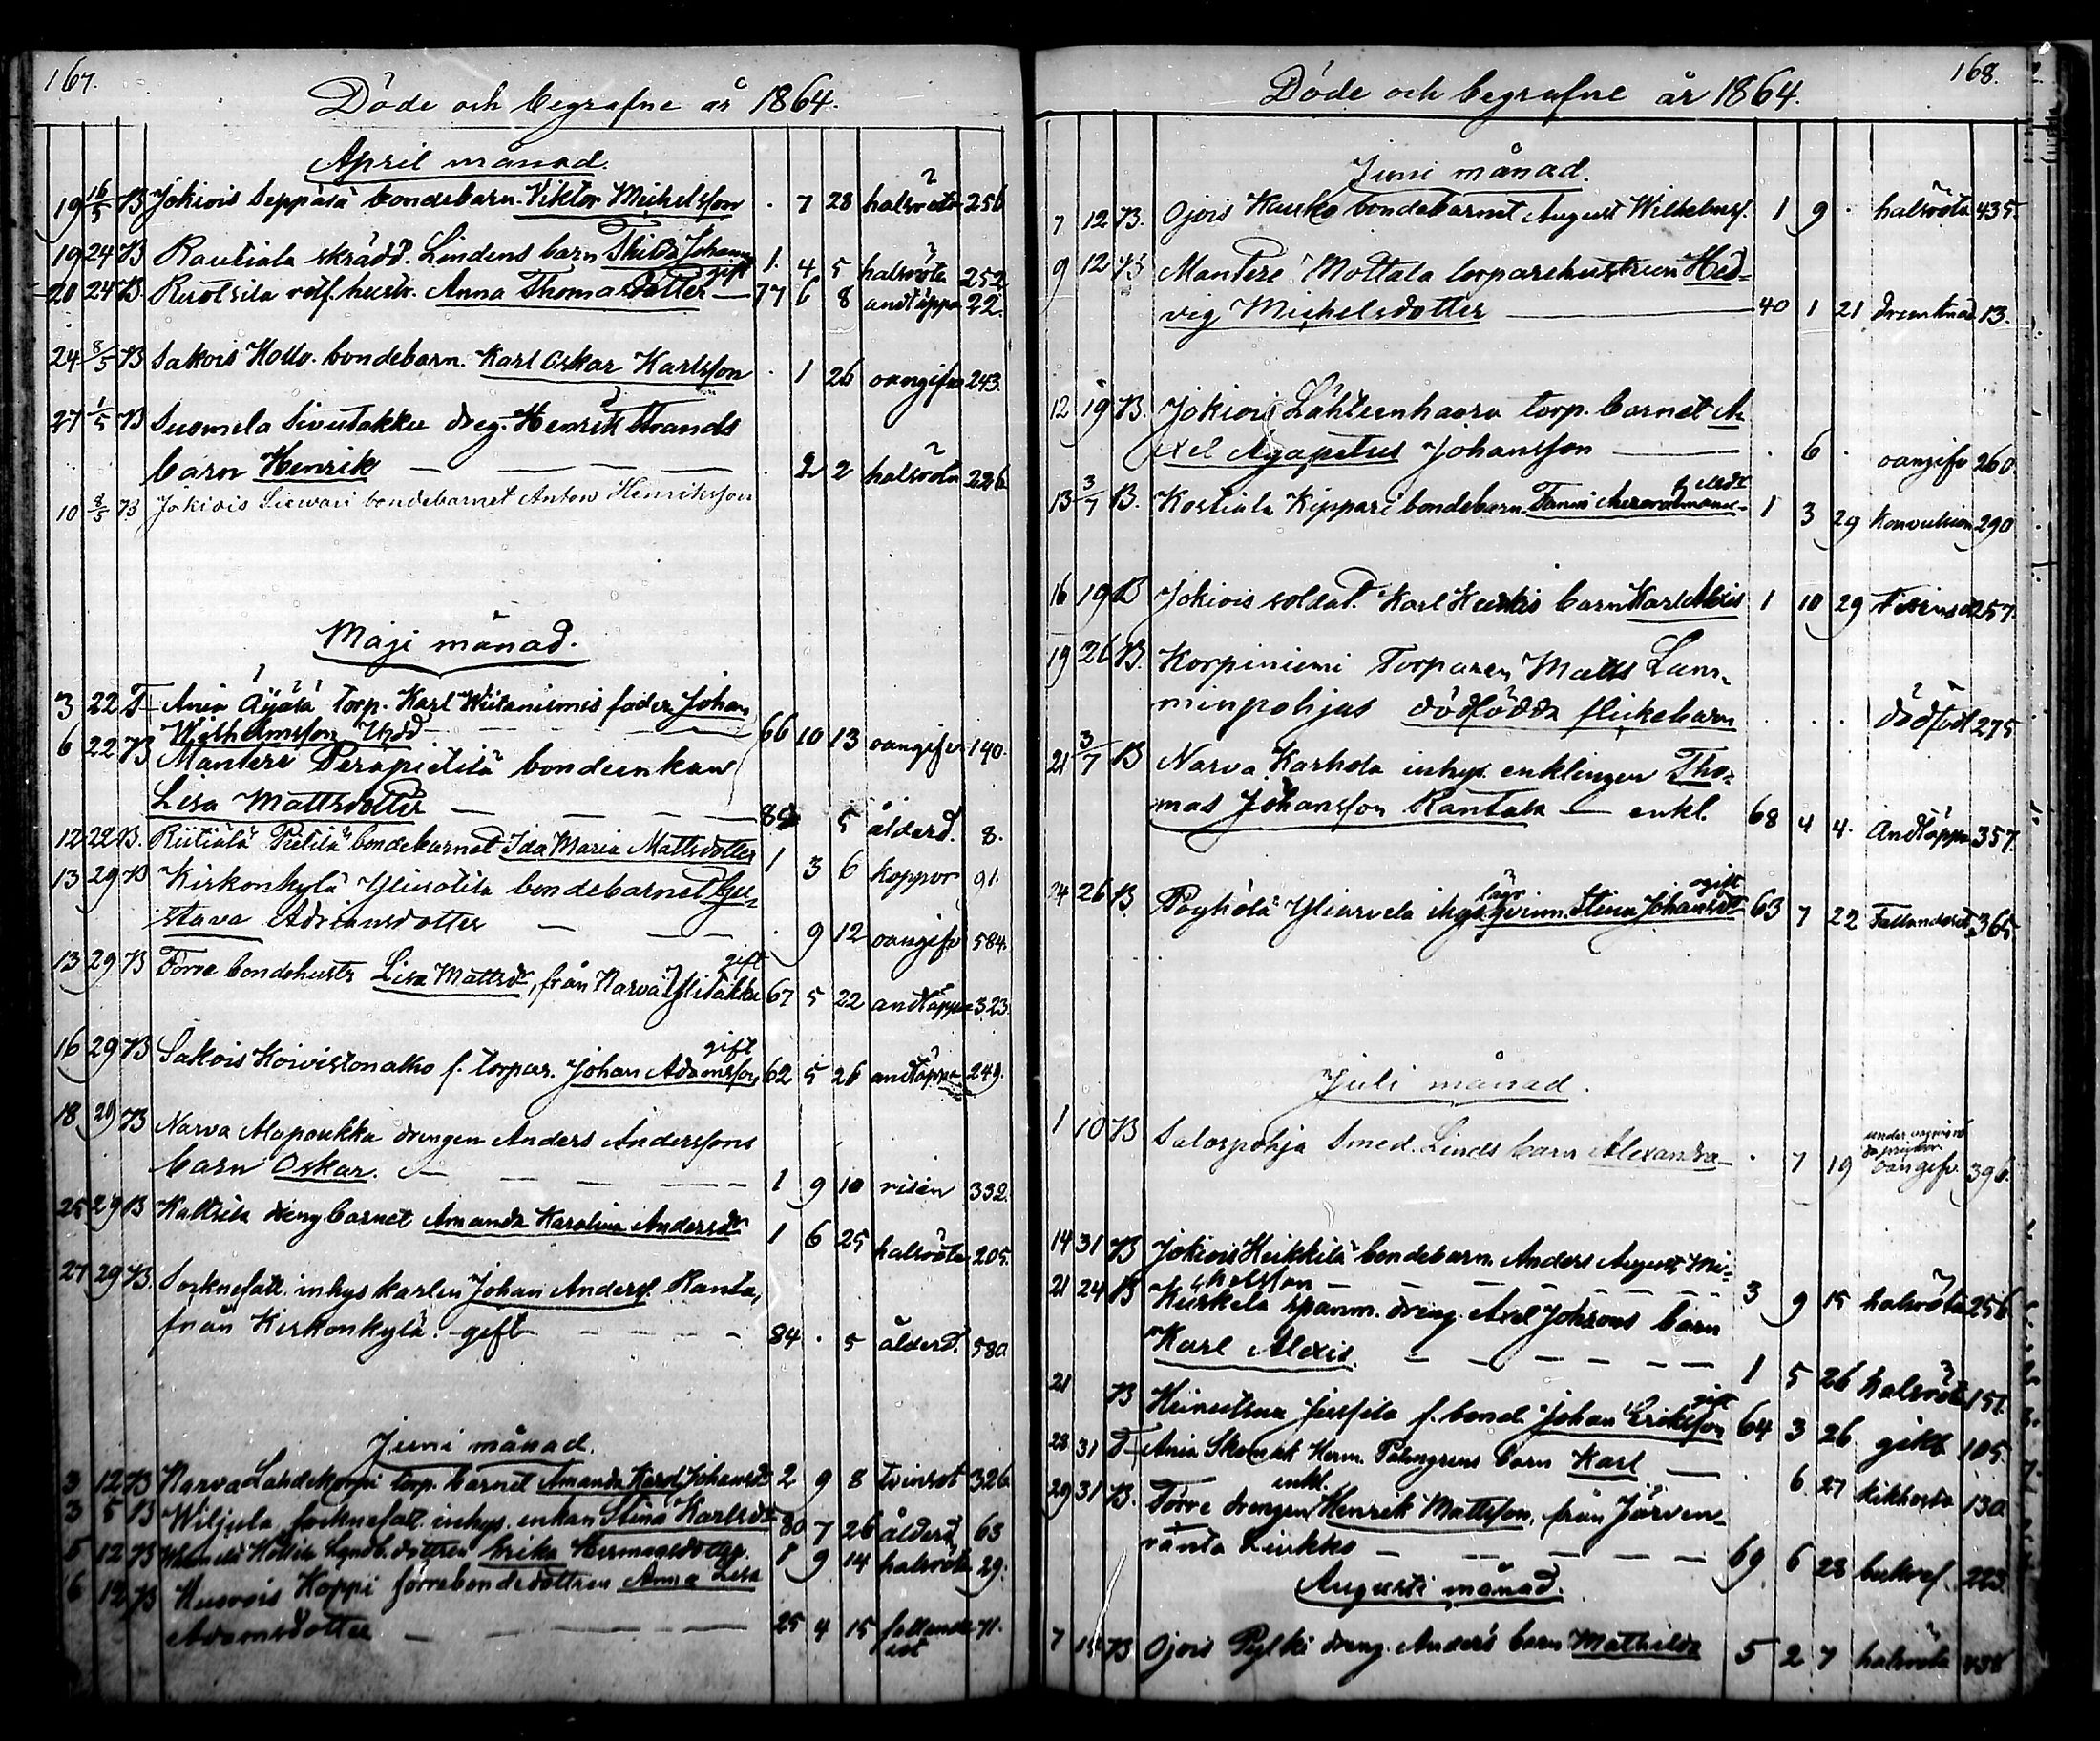 167.
Döde och begrafne år 1864.
April månad.
19 16/5 B Jokiois Seppälä bondebarn. Viktor Michelsson . 7 28 halsröta 256
19 24 B Rautiala skrädd. Lindens barn Johann 1. 4 5 halsröta 252
gift
20 24 B rotf. hustr. Anna Thomasdotter — 77 6 8 andtäppa 22.
24 8/5 B Sakois Hollo. bondebarn. Karl Oskar Karlsson . 1 26 oangifv 243.
27 1/5 B Suomela Sivutakka dreg. Henrik Strands
barn Henrik — — — — . 2 2 halsröta 226
10 8/5 B Jokiois Siewari bondebarnet Anton Henriksson
Maji månad.
3 22 T Ania Äijälä torp. Karl Wiitaniemis fader Johan
Wilhelmsson 66 10 13 oangifv 140.
6 22 B Mantere Perapietilä bondeenkan
Lisa Mattsdotter — — — 5 ålderd. 8.
12 22 B. Riitiälä Pietilä bondebarnet Ida Maria Mattsdotter 1 3 6 koppor 91.
13 29 B Kirkonkylä Yliuotila bondebarnet Gu-
stava Adriansdotter — — . 9 12 oangifv 584.
gift
13 29 B Förre bondehustr Lisa Mattsdr, från Narva Ylitakku 67 5 22 andtäppa 323.
gift
16 29 B Sakois Koivistonalho f. torpar. Johan Adamsson 62 5 26 andtäppa 249.
18 29 B Narva Alapoukka drengen Anders Anderssons
barn Oskar. — — — — 1 9 10 risen 332.
25 29 B Kaltsila drengbarnet Amanda Karolina Andersdr 1 6 25 halsröta 205.
27 29 B. Socknefatt. inhys karlen Johan Anderss. Ranta,
från Kirkonkylä. gift — — — 84 . 5 ålderd. 580
Juni månad.
3 12 B Narva Lahdekorpi torp. barnet Amanda Karol. Johansdr 2 9 8 tvinsot 326
3 5 B Wiljula socknefatt. inhys. enkan Stina Karlsdr 80 7 26 ålderd. 63
5 12 B dottren Erika Hermansdotter. 1 9 14 halsröta 29.
6 12 B Huovois Koppi förrebondedottren Anna Lisa
Adamsdotter — — — 25 4 15 fallande 71.
sot
168.
Döde och begrafne år 1864.
Juni månad.
7 12 B. Ojois Hauko bondebarnet August Wilhelmss. 1 9 . halsröta 435.
9 12 B Mantere Mottala torparehustrun Hed-
vig Michelsdotter — 40 1 21 13.
12 19 B. Jokiois Lähteenhaara torp. barnet A-
xel Agapetus Johansson — . 6 . oangifv 260
13 3/7 B. Kostiala Kippari bondebarn. Fanni 1 3 29 Konvulsion 290
16 19 B Jokiois soldat. Karl Hurkis barn Karl Alexis 1 10 29 257.
19 26 B. Korpiniemi Torparen Matts Lam-
minpohjas dödfödda flickebarn . . . dödfödt 275
21 3/7 B Narva Karhola inhys. enklingen Tho-
mas Johansson Rantala — enkl. 68 4 4. Andtäppa 357.
gift
24 26 B. Pöyhölä Yliarvela Stina Johansdr 63 7 22 Fallandesot 365.
Juli månad.
1 10 B Salospohja Smed. Linds barn Alexandra — . 7 19 oangifv. 396.
14 31 B Jokiois Heikkilä bondebarn. Anders August Mi-
chelsson — — — 3 9 15 halsröta 256
21 24 B Kurkela spanm. dreng. Axel Johsons barn
Karl Alexis. — — — — 1 5 26 halsröta 151.
gift
21 B Heinustua Jussila f. bond. Johan Eriksson 64 3 26 gikt 105.
28 31 T Ania Skomak Herm. Palmgrens barn Karl — . 6. 27 kikhosta 130
enkl.
29 31 B. Förre drengen Henrik Mattsson, från Järven-
ranta Liukko — — — 69 6 28 223.
Augusti månad.
7 14 B Ojois Pylki dreng. Anders barn Mathilda 5 2 7 halsröta 438